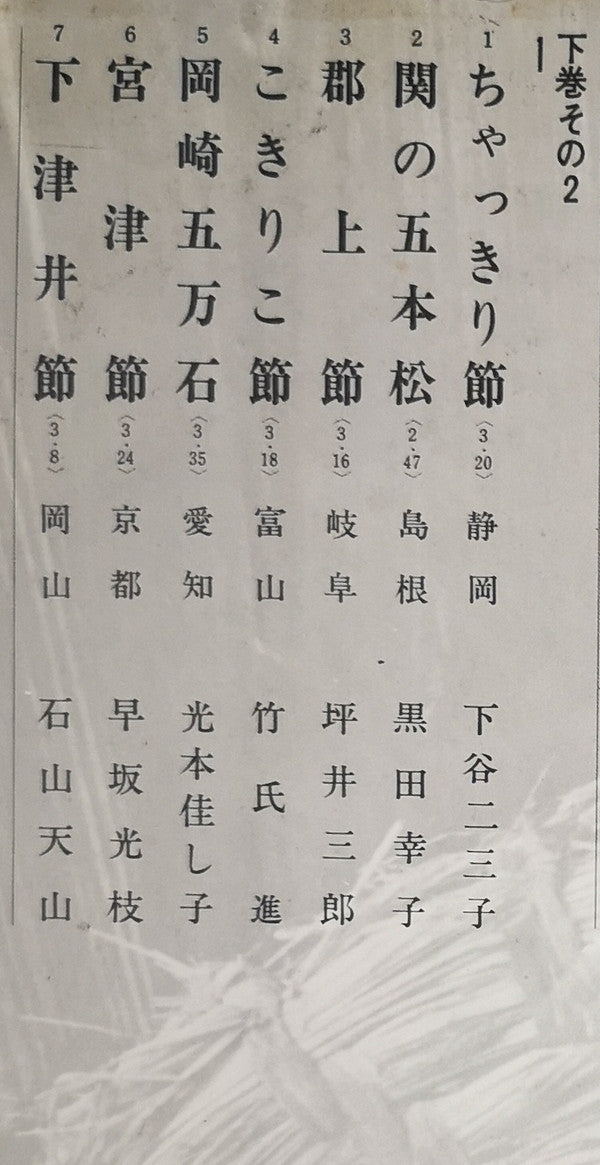 下巻その2
1 ちゃっきり節 〈3・20〉 静岡 下谷二三子
2 関の五本松 〈2・47〉 島根 黒田幸子
3 郡上節 〈3・16〉 岐阜 坪井三郎
4 こきりこ節 〈3・18〉 富山 竹氏進
5 岡崎五万石 〈3・35〉 愛知 光本佳し子
6 宮津節 〈3・24〉 京都 早坂光枝
7 下津井節 〈3・8〉 岡山 石山天山